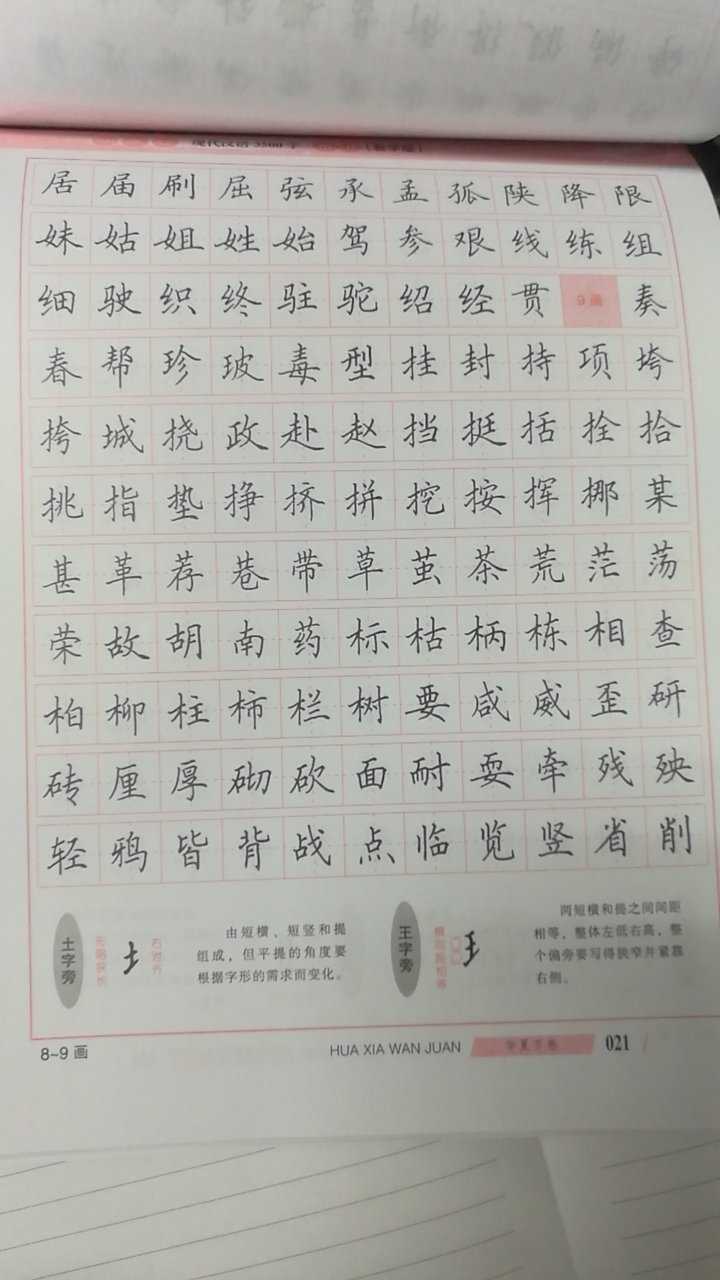 现代汉语3500字
居届刷屈弦承孟孤陕降限
妹姑姐姓始驾参艰线练组
细驶织终驻驼绍经贯9画奏
春帮珍玻毒型挂封持项垮
挎城挠政赴赵挡挺括拴拾
挑指垫挣挤拼挖按挥挪某
甚革荐巷带草茧茶荒茫荡
荣故胡南药标枯柄栋相查
柏柳柱柿栏树要咸威歪研
砖厘厚砌砍面耐耍牵残殃
轻鸦皆背战点临览竖省削
土字旁
形略探长
右对齐
由短横、短竖和提
组成，但平提的角度要
根据字形的需求而变化。
王字旁
横间距相等
两短横和提之间间距
相等，整体左低右高，整
个偏旁要写得狭窄并紧靠
右侧。
8~9 画
HUA XIA WAN JUAN
华夏万卷
021